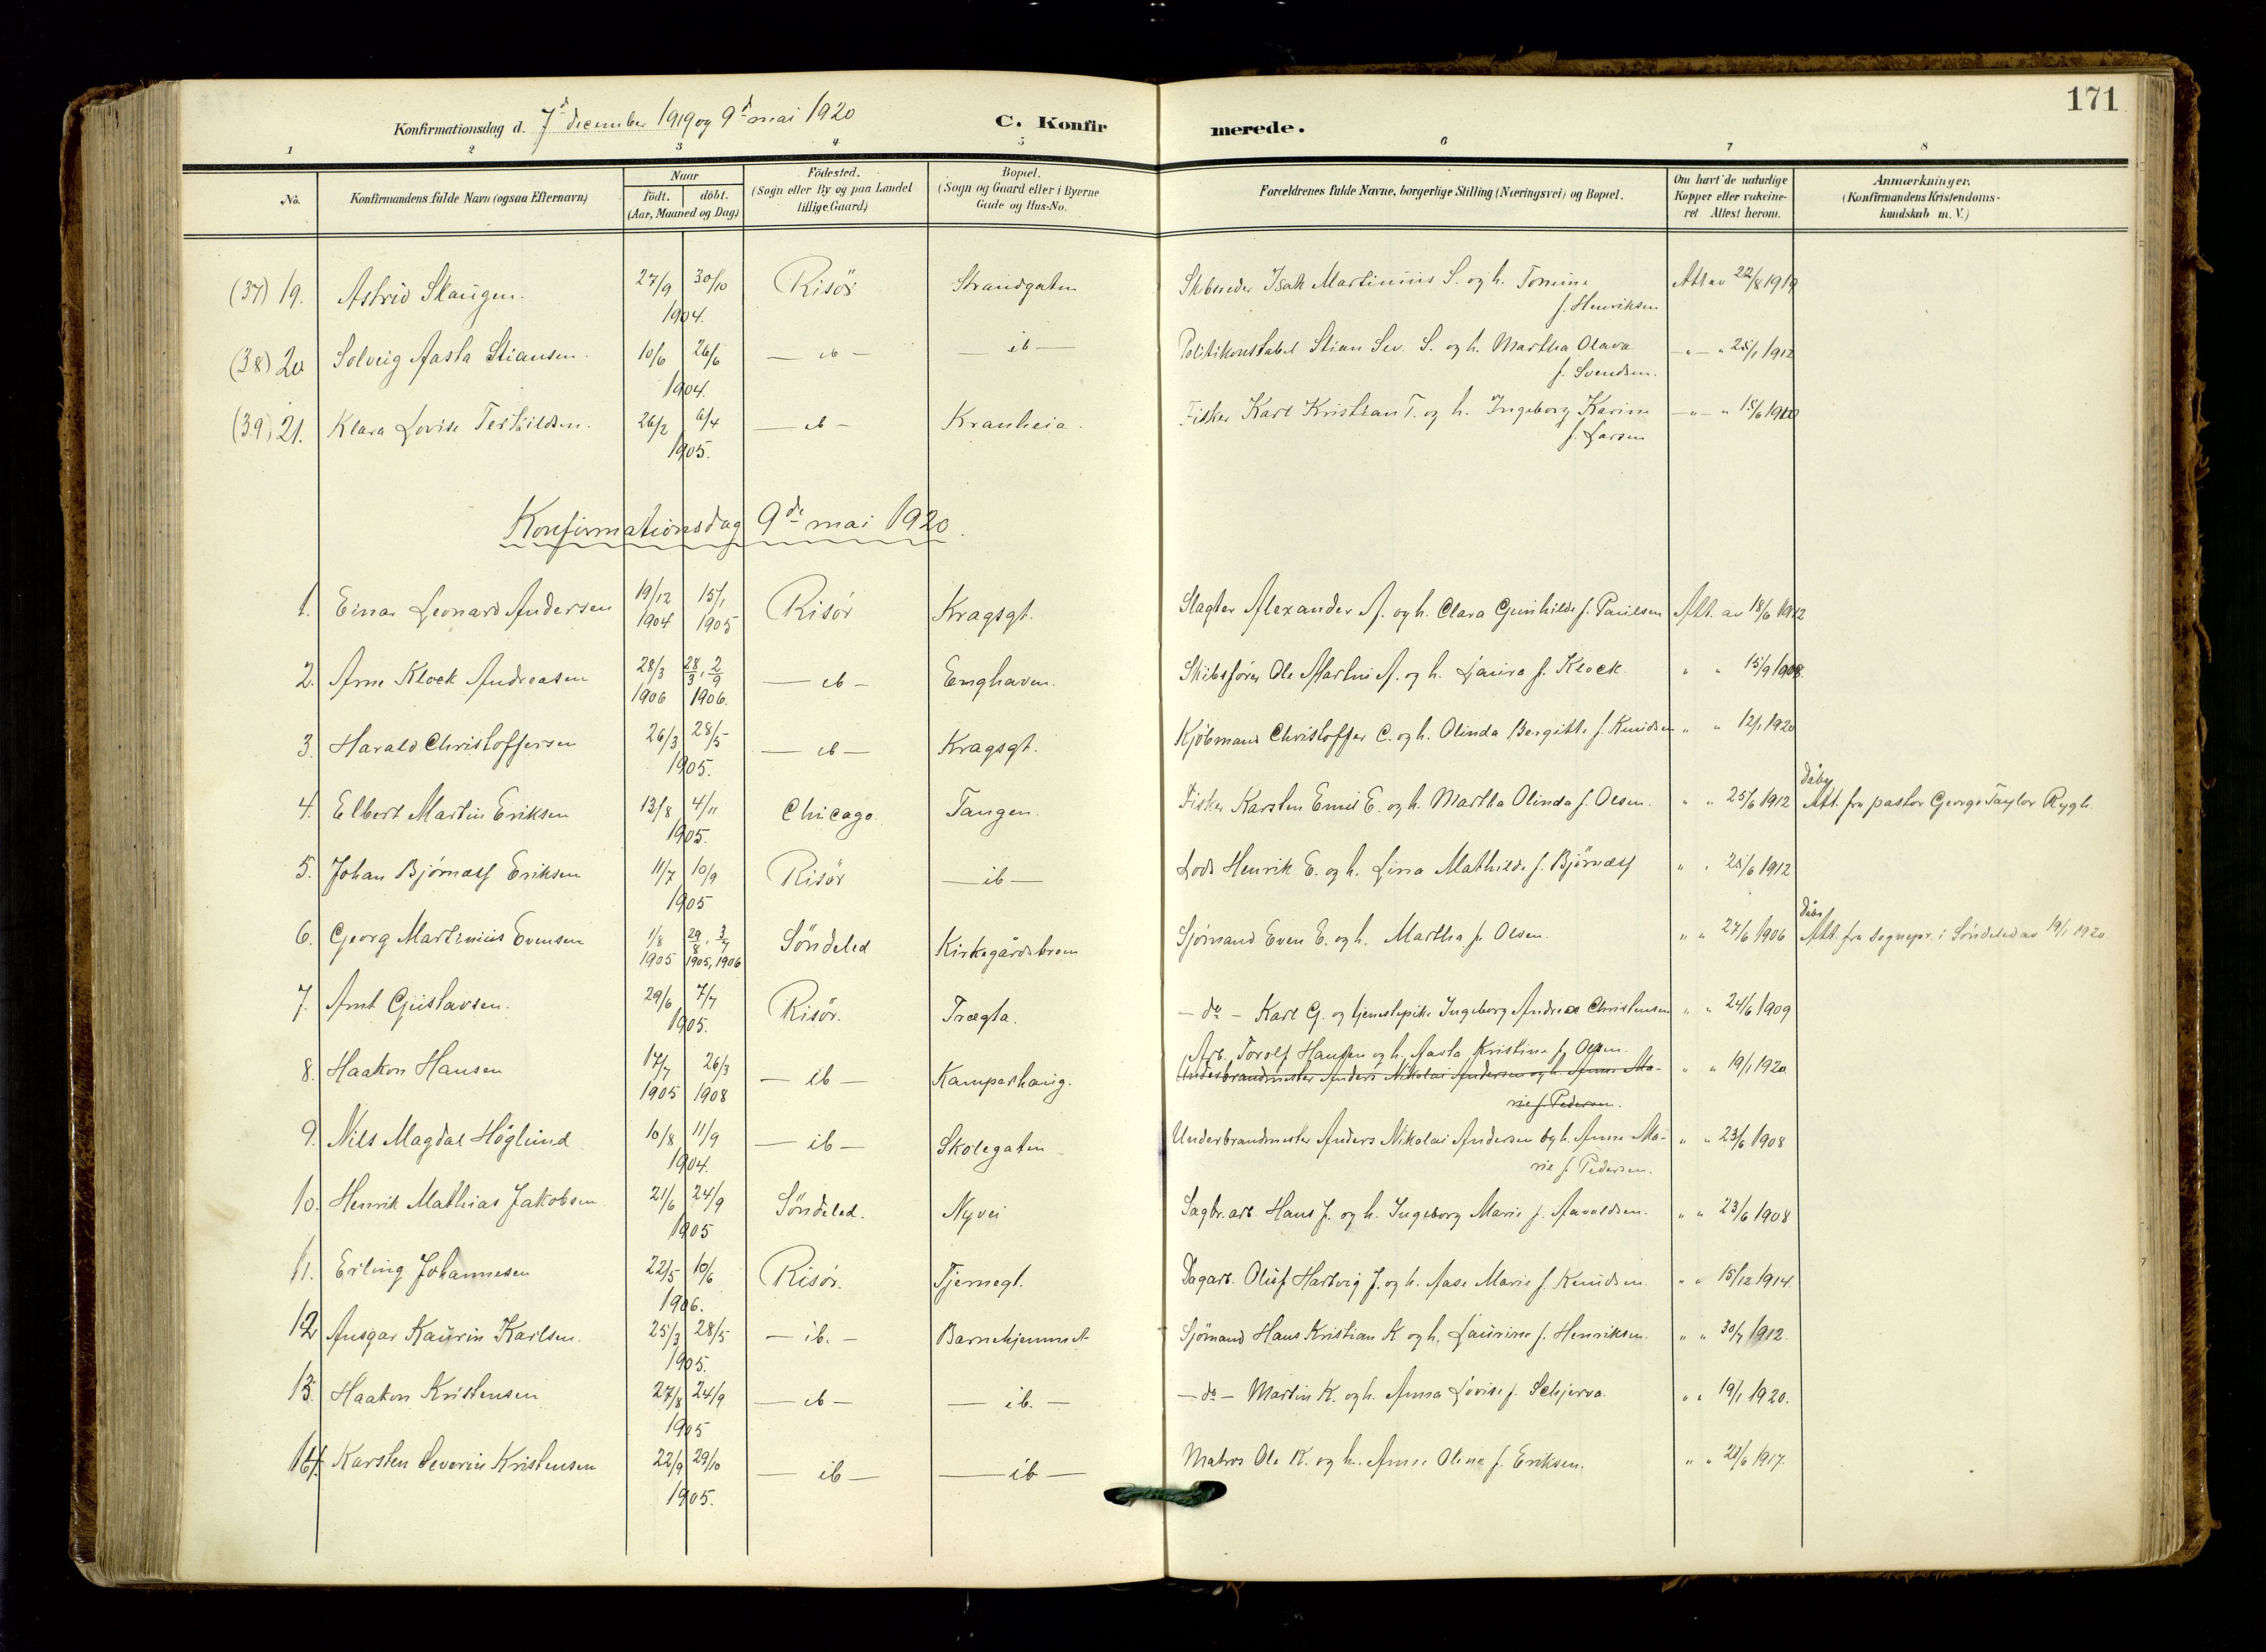 171
Konfirmationsdag d. 7d december 1919 og 9d mai 1920 C. Konfirmerede.
1 2 3 4 5 6 7 8
No. Konfirmandens fulde Navn (ogsaa Efternavn) Naar födt. döbt. (Aar, Maaned og Dag) Födested. (Sogn eller By og paa Landet tillige Gaard) Bopæl. (Sogn og Gaard eller i Byerne Gade og Hus-No. Forældrenes fulde Navne, borgerlige Stilling (Næringsvei) og Bopæl. Om havt de naturlige Kopper eller vakcineret Attest herom. Anmærkninger. (Konfirmandens Kristendomskundskab m. V.)
(37) 19. Astrid Skaugen. 27/9 30/10 1904. Risör Strandgaten Skibsreder Isak Martinius S. og h. Tomine f. Henriksen Att av 22/8 1919
(38) 20 Solveig Aasta Stiansen. 10/6 26/6 1904. — ib — — ib — Politikonstabel Stian Sev. S. og h. Martha Olava f. Svendsen. — " — " 25/1 1912
(39) 21. Klara Lovise Terkildsen. 26/2 6/4 1905. — ib — Kranheia. Fisker Karl Kristian T. og h. Ingeborg Karine f. Larsen — " — "
Konfirmationsdag 9de mai 1920.
1. Einar Leonard Andersen 19/12 1904 15/1 1905 Risör Kragsgt. Slagter Alexander A. og h. Clara Gunhilde f. Paulsen Att. av 18/6 1912
2. Arne Klock Andreasen 28/3 1906 28/3, 2/9 1906. — ib — Enghaven. Skibsfører Ole Martin A. og h. Laura f. Klock. " " 15/9 1908.
3. Harald Christoffersen 26/3 28/5 1905. — ib — Kragsgt. Kjöbmand Christoffer C. og h. Olinda Bergitte f. Knudsen " " 12/1 1920
4. Elbert Martin Eriksen 13/8 4/11 1905. Chicago Tangen. Fisker Karsten Emil E. og h. Martha Olinda f. Olsen. " " 25/6 1912 Dåbs Att. fra pastor George Taylor Rygh.
5. Johan Bjørnæss Eriksen 11/7 10/9 1905 Risör — ib — Lods Henrik E. og h. Lina Mathilde f. Bjørnæss " " 25/6 1912
6. Georg Martinius Evensen 1/8 1905 29/8, 3/7 1905, 1906 Söndeled Kirkegårdsbroen Sjømand Even E. og h. Martha f. Olsen. " " 27/6 1906 Dåbs Att. fra sognepr. i Söndeled av 19/1 1920
7. Arnt Gustavsen. 29/6 7/7 1905. Risör. Trægta. — do — Karl G. og tjenestepike Ingeborg Andrea Christensen " " 24/6 1909
8. Haakon Hansen 17/7 1905 26/3 1908 — ib — Kamperhaug. Arb. Torolf Hansen og h. Aasta Kristine f. Olsen.
Underbrandmester Anders Nikolai Andersen og h. Anne Marie f. Pedersen. " " 19/1 1920
9. Nils Magdal Höglund 10/8 11/9 1904. — ib — Skolegaten Underbrandmester Anders Nikolai Andersen og h. Anne Marie f. Pedersen. " " 23/6 1908
10. Henrik Mathias Jakobsen 21/6 24/9 1905 Söndeled. Nyvei Sagbr.arb. Hans J. og h. Ingeborg Marie f. Aavaldsen. " " 23/6 1908
11. Erling Johannesen 22/5 10/6 1906. Risör. Tjernegt. Dagarb. Oluf Hartvig J. og h. Aase Marie f. Knudsen. " " 15/12 1914.
12 Ansgar Kaurin Karlsen. 25/3 28/5 1905. — ib. — Barnehjemmet Sjömand Hans Kristian K og h. Laurine f. Henriksen. " " 30/7 1912.
13. Haakon Kristensen 27/8 24/9 1905 — ib — — ib. — — do — Martin K. og h. Anna Lovise f. Schjerva. " " 19/1 1920.
14. Karsten Severin Kristensen 22/9 29/10 1905. — ib — — ib — Matros Ole K. og h. Anne Oline f. Eriksen. " " 28/6 1917.